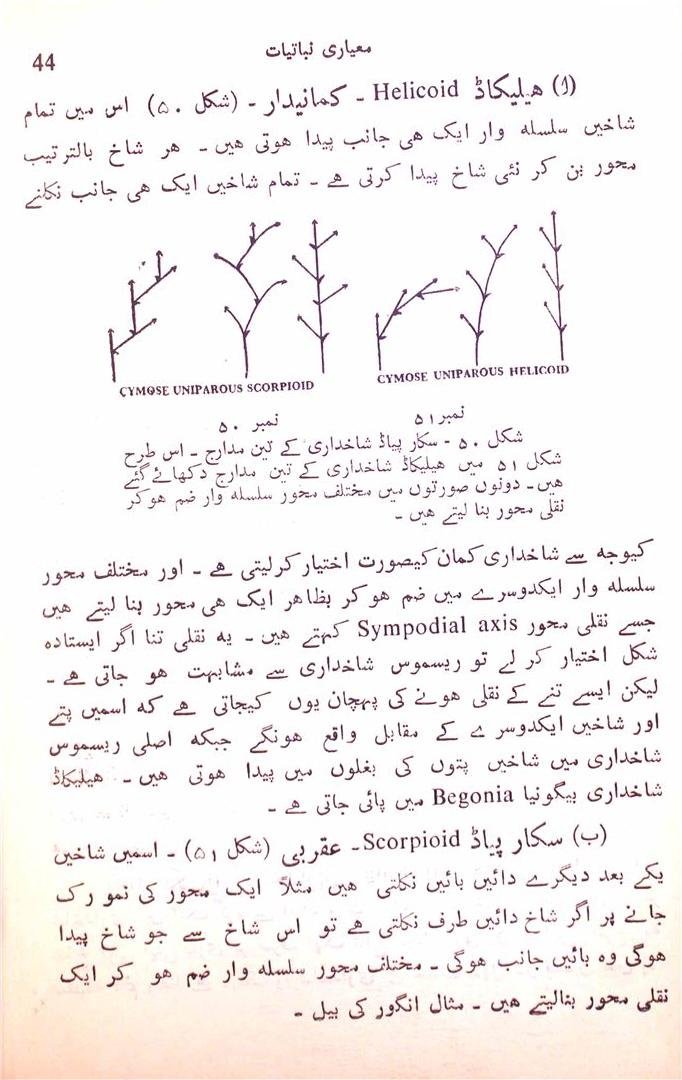 معیاری نباتیات
44
(ا) ھیلیکاڈ Helicoid - کمانیدار - (شکل ۵۰) اس میں تمام
شاخیں سلسلہ وار ایک ھی جانب پیدا ھوتی ھیں - ھر شاخ بالترتیب
محور بن کر نئی شاخ پیدا کرتی ہے - تمام شاخیں ایک ھی جانب نکلنے
CYMOSE UNIPAROUS SCORPIOID
CYMOSE UNIPAROUS HELICOID
نمبر ۵۱
نمبر ۵۰
شکل ۵۰ - سکار پیاڈ شاخداری کے تین مدارج - اس طرح
شکل ۵۱ میں ھیلیکاڈ شاخداری کے تین مدارج دکھائے گئے
ھیں - دونوں صورتوں میں مختلف محور سلسلہ وار ضم ھوکر
نقلی محور بنا لیتے ھیں -
کیوجہ سے شاخداری کمان کیصورت اختیار کرلیتی ہے - اور مختلف محور
سلسلہ وار ایکدوسرے میں ضم ھوکر بظاھر ایک ھی محور بنا لیتے ھیں
جسے نقلی محور Sympodial axis کہتے ھیں - یہ نقلی تنا اگر ایستادہ
شکل اختیار کر لے تو ریسموس شاخداری سے مشابہت ھو جاتی ہے -
لیکن ایسے تنے کے نقلی ھونے کی پہچان یوں کیجاتی ہے کہ اسمیں پتے
اور شاخیں ایکدوسرے کے مقابل واقع ھونگے جبکہ اصلی ریسموس
شاخداری میں شاخیں پتوں کی بغلوں میں پیدا ھوتی ھیں - ھیلیکاڈ
شاخداری بیگونیا Begonia میں پائی جاتی ہے -
(ب) سکار پیاڈ Scorpioid - عقربی (شکل ۵۱) - اسمیں شاخیں
یکے بعد دیگرے دائیں بائیں نکلتی ھیں مثلاً ایک محور کی نمو رک
جانے پر اگر شاخ دائیں طرف نکلتی ہے تو اس شاخ سے جو شاخ پیدا
ھوگی وہ بائیں جانب ھوگی - مختلف محور سلسلہ وار ضم ھو کر ایک
نقلی محور بنالیتے ھیں - مثال انگور کی بیل -